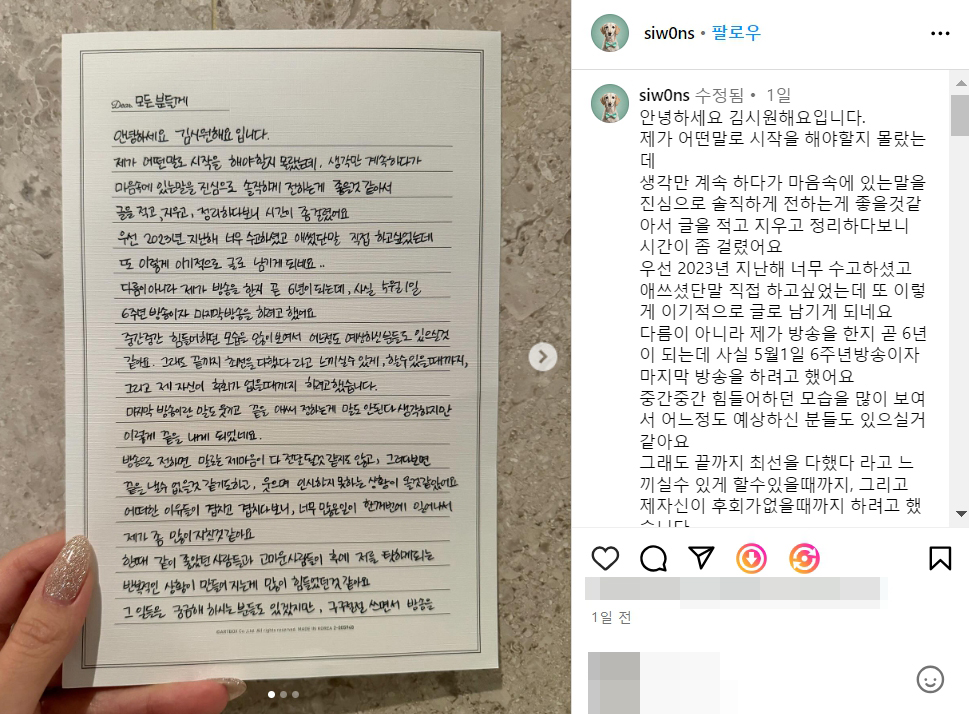 Dear. 모든 분들께
안녕하세요 김시원해요 입니다.
제가 어떤말로 시작을 해야할지 몰랐는데, 생각만 계속하다가
마음속에 있는말을 진심으로 솔직하게 전하는게 좋을것 같아서
글을 적고 지우고, 정리하다보니 시간이 좀 걸렸어요
우선 2023년 지난해 너무 수고하셨고 애썼단말 직접 하고싶었는데
또 이렇게 이기적으로 글로 남기게 되네요..
다름이 아니라 제가 방송을 한지 곧 6년이 되는데, 사실 5월 1일
6주년 방송이자 마지막 방송을 하려고 했어요
중간중간 힘들어하던 모습을 많이 보여서 어느정도 예상하신분들도 있으실것
같아요. 그래도 끝까지 최선을 다했다 라고 느끼실수 있게, 할수있을때까지,
그리고 제 자신이 후회가 없을때까지 하려고했습니다.
마지막 방송이란 말도 웃기고 끝을 애써 전하는게 말도 안된다 생각하지만
이렇게 끝을 내게 되었네요.
방송으로 전하면 말로는 제마음이 다 전달될것 같지도 않고, 그러다보면
끝을 낼수 없을것 같기도하고, 웃으며 인사하지 못하는 상황이 올것같았어요
어떠한 이유들이 겹치고 겹치다보니, 너무 많은일이 한꺼번에 일어나서
제가 좀 많이 지쳤던것같아요
한때 같이 좋았던 사람들과 고마운사람들이 후에 저를 탓하게되는
반복적인 상황이 만들어 지는게 많이 힘들었던것 같아요
그 일들은 궁금해 하시는 분들도 있겠지만, 구구절절 쓰면서 방송을
siw0ns • 팔로우
siw0ns 수정됨 • 1일
안녕하세요 김시원해요입니다.
제가 어떤말로 시작을 해야할지 몰랐는
데
생각만 계속 하다가 마음속에 있는말을
진심으로 솔직하게 전하는게 좋을것같
아서 글을 적고 지우고 정리하다보니
시간이 좀 걸렸어요
우선 2023년 지난해 너무 수고하셨고
애쓰셨단말 직접 하고싶었는데 또 이렇
게 이기적으로 글로 남기게 되네요
다름이 아니라 제가 방송을 한지 곧 6년
이 되는데 사실 5월1일 6주년방송이자
마지막 방송을 하려고 했어요
중간중간 힘들어하던 모습을 많이 보여
서 어느정도 예상하신 분들도 있으실거
같아요
그래도 끝까지 최선을 다했다 라고 느
끼실수 있게 할수있을때까지, 그리고
제자신이 후회가없을때까지 하려고 했
습니다
1일 전